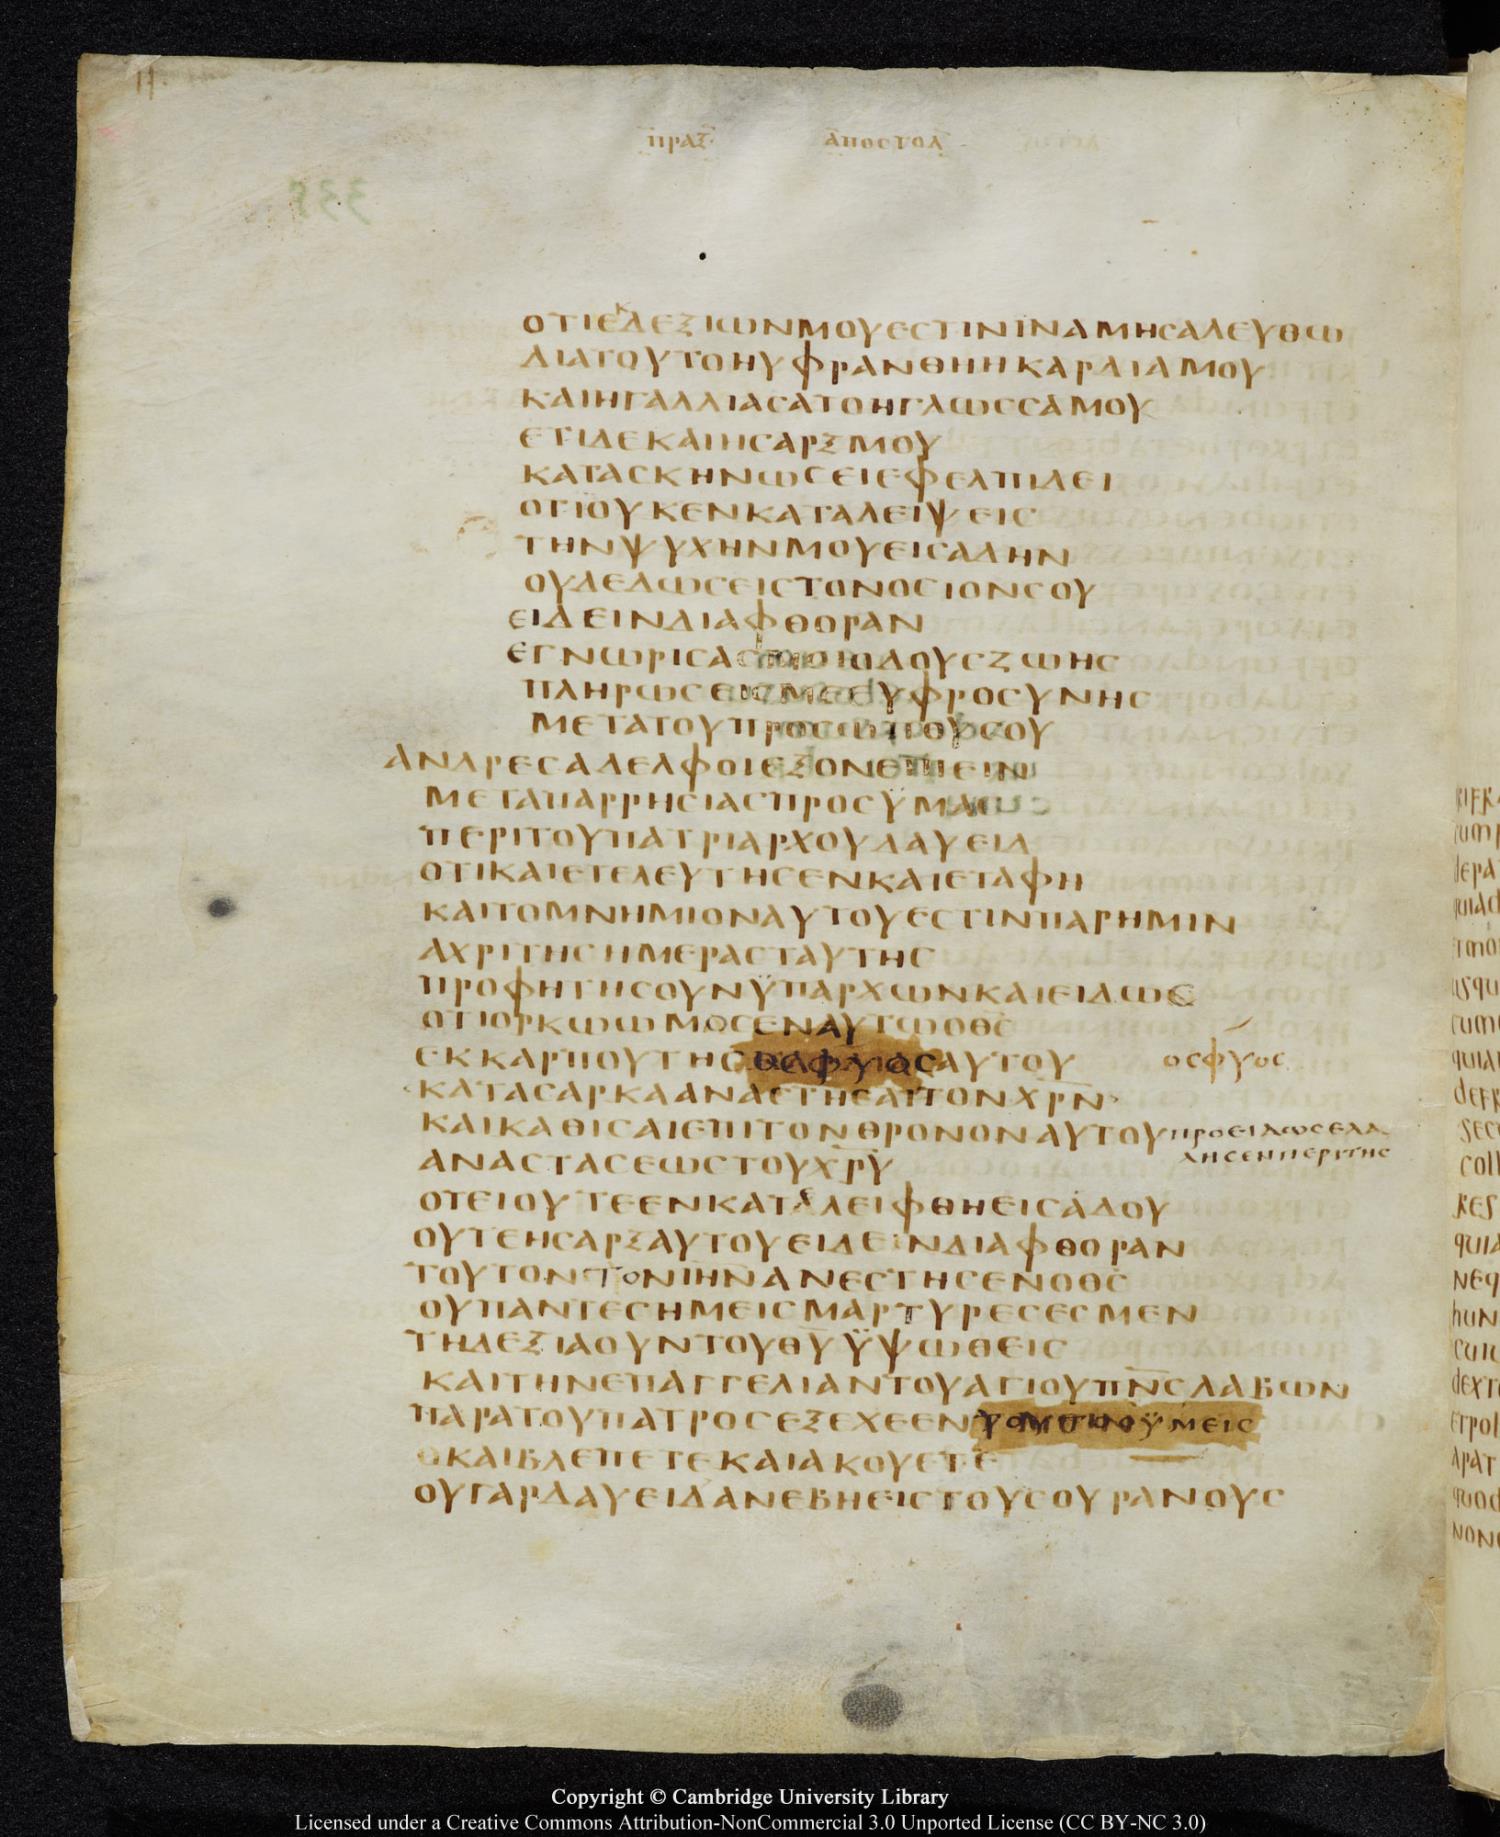 ΠΡΑΞ ΑΠΟΣΤΟΛ
ΟΤΙΕΚΔΕΞΙΩΝΜΟΥΕϹΤΙΝΙΝΑΜΗϹΑΛΕΥΘΩ
ΔΙΑΤΟΥΤΟΗΥΦΡΑΝΘΗΗΚΑΡΔΙΑΜΟΥ
ΚΑΙΗΓΑΛΛΙΑϹΑΤΟΗΓΛΩϹϹΑΜΟΥ
ΕΤΙΔΕΚΑΙΗϹΑΡΞΜΟΥ
ΚΑΤΑϹΚΗΝΩϹΕΙΕΦΕΛΠΙΔΕΙ
ΟΤΙΟΥΚΕΝΚΑΤΑΛΕΙΨΕΙϹ
ΤΗΝΨΥΧΗΝΜΟΥΕΙϹΑΔΗΝ
ΟΥΔΕΔΩϹΕΙϹΤΟΝΟϹΙΟΝϹΟΥ
ΕΙΔΕΙΝΔΙΑΦΘΟΡΑΝ
ΕΓΝΩΡΙϹΑϹΜΟΙΟΔΟΥϹΖΩΗϹ
ΠΛΗΡΩϹΕΙϹΜΕΕΥΦΡΟϹΥΝΗϹ
ΜΕΤΑΤΟΥΠΡΟϹΩΠΟΥϹΟΥ
ΑΝΔΡΕϹΑΔΕΛΦΟΙΕΞΟΝΕΙΠΕΙΝ
ΜΕΤΑΠΑΡΡΗϹΙΑϹΠΡΟϹΫΜΑϹ
ΠΕΡΙΤΟΥΠΑΤΡΙΑΡΧΟΥΔΑΥΕΙΔ
ΟΤΙΚΑΙΕΤΕΛΕΥΤΗϹΕΝΚΑΙΕΤΑΦΗ
ΚΑΙΤΟΜΝΗΜΙΟΝΑΥΤΟΥΕϹΤΙΝΠΑΡΗΜΙΝ
ΑΧΡΙΤΗϹΗΜΕΡΑϹΤΑΥΤΗϹ
ΠΡΟΦΗΤΗϹΟΥΝΫΠΑΡΧΩΝΚΑΙΕΙΔΩϹ
ΟΤΙΟΡΚΩΩΜΟϹΕΝΑΥΤΩΟΘ̅Ϲ̅
ΕΚΚΑΡΠΟΥΤΗϹ ΑΥΤΟΥ ΟϹΦΥΟϹ
ΚΑΤΑϹΑΡΚΑΑΝΑϹΤΗϹΑΙΤΟΝΧ̅Ρ̅Ν̅
ΚΑΙΚΑΘΙϹΑΙΕΠΙΤΟΝΘΡΟΝΟΝΑΥΤΟΥ ΠΡΟΕΙΔΩϹΕΛΑ
ΛΗϹΕΝΠΕΡΙΤΗϹ
ΑΝΑϹΤΑϹΕΩϹΤΟΥΧ̅Ρ̅Υ̅
ΟΤΕΙΟΥΤΕΕΝΚΑΤΕΛΕΙΦΘΗΕΙϹΑΔΟΥ
ΟΥΤΕΗϹΑΡΞΑΥΤΟΥΕΙΔΕΙΝΔΙΑΦΘΟΡΑΝ
ΤΟΥΤΟΝΤΟΝΙ̅Η̅Ν̅ΑΝΕϹΤΗϹΕΝΟΘ̅Ϲ̅
ΟΥΠΑΝΤΕϹΗΜΕΙϹΜΑΡΤΥΡΕϹΕϹΜΕΝ
ΤΗΔΕΞΙΑΟΥΝΤΟΥΘ̅Υ̅ΫΨΩΘΕΙϹ
ΚΑΙΤΗΝΕΠΑΓΓΕΛΙΑΝΤΟΥΑΓΙΟΥΠ̅Ν̅Ϲ̅ΛΑΒΩΝ
ΠΑΡΑΤΟΥΠΑΤΡΟϹΕΞΕΧΕΕΝ ΫΜΕΙϹ
ΟΚΑΙΒΛΕΠΕΤΕΚΑΙΑΚΟΥΕΤΕ
ΟΥΓΑΡΔΑΥΕΙΔΑΝΕΒΗΕΙϹΤΟΥϹΟΥΡΑΝΟΥϹ
Copyright © Cambridge University Library
Licensed under a Creative Commons Attribution-NonCommercial 3.0 Unported License (CC BY-NC 3.0)